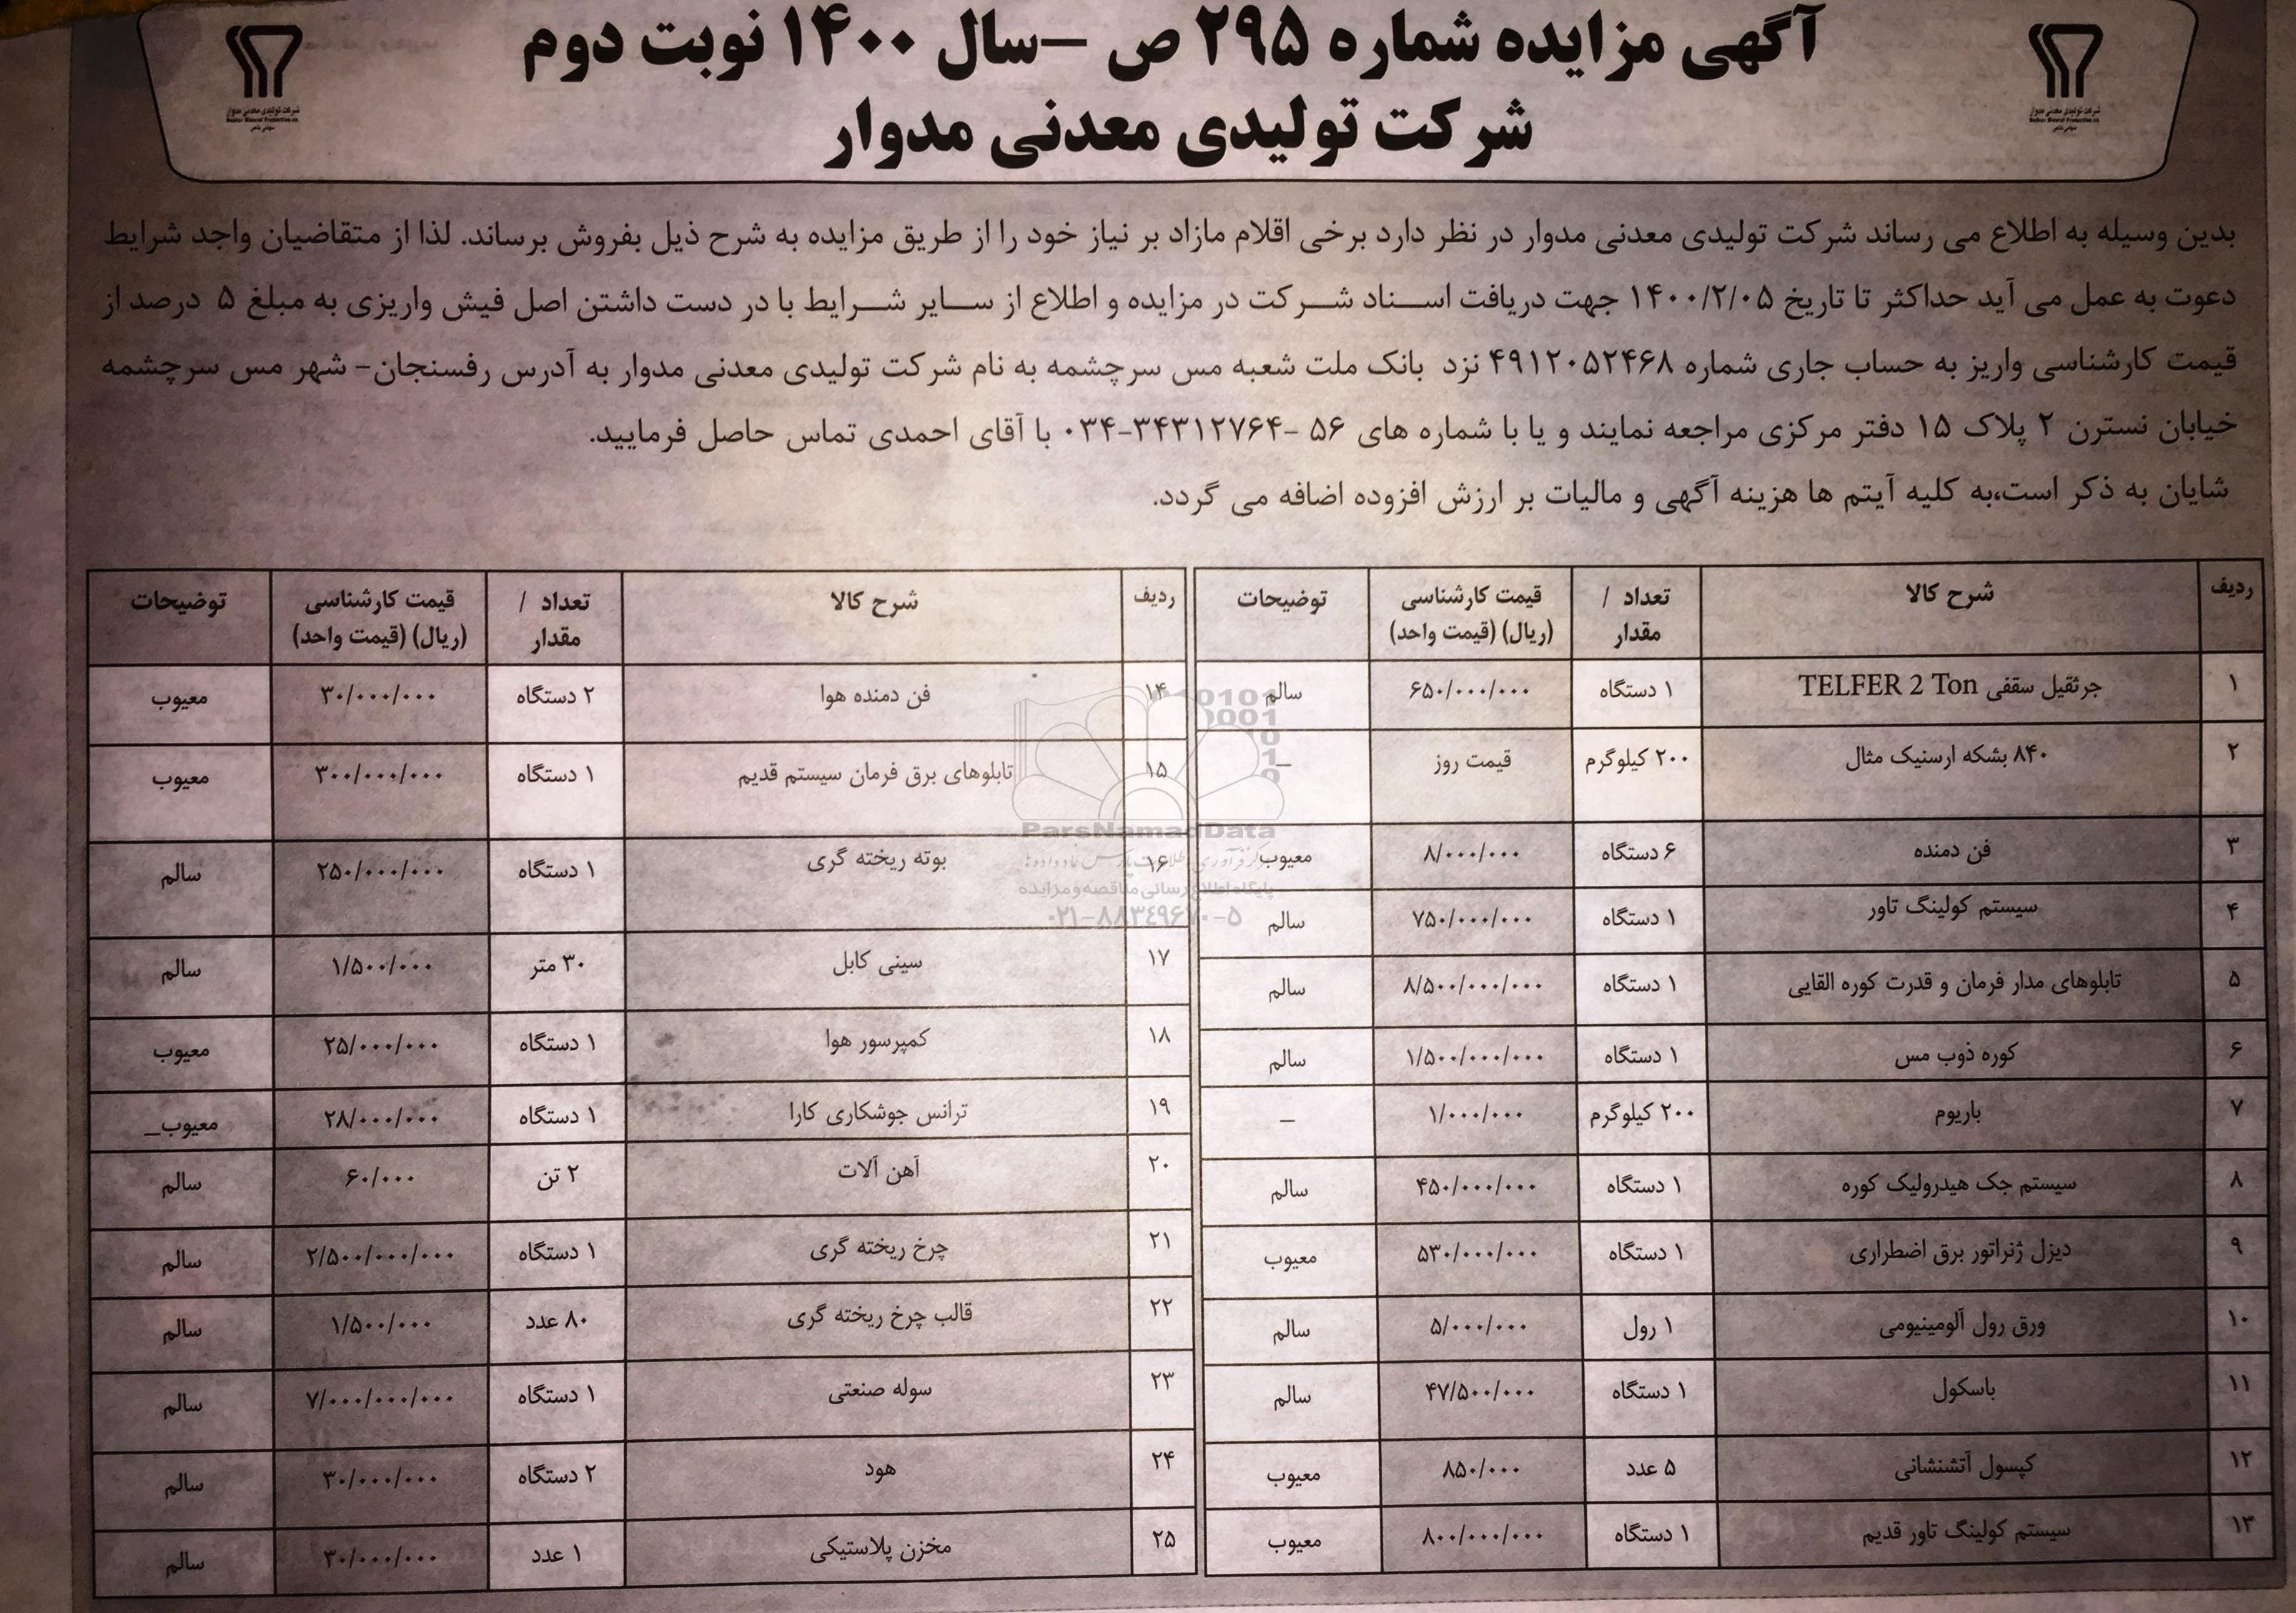 آگهی مزایده شماره ۲۹۵ ص –سال ۱۴۰۰ نوبت دوم
شرکت تولیدی معدنی مدوار
شرکت تولیدی معدنی مدوار
Madvar Mineral Production co
سهامی خاص
شرکت تولیدی معدنی مدوار
Madvar Mineral Production co
سهامی خاص
بدین وسیله به اطلاع می رساند شرکت تولیدی معدنی مدوار در نظر دارد برخی اقلام مازاد بر نیاز خود را از طریق مزایده به شرح ذیل بفروش برساند. لذا از متقاضیان واجد شرایط
دعوت به عمل می آید حداکثر تا تاریخ ۱۴۰۰/۲/۰۵ جهت دریافت اسناد شرکت در مزایده و اطلاع از سایر شرایط با در دست داشتن اصل فیش واریزی به مبلغ ۵ درصد از
قیمت کارشناسی واریز به حساب جاری شماره ۴۹۱۲۰۵۲۴۶۸ نزد بانک ملت شعبه مس سرچشمه به نام شرکت تولیدی معدنی مدوار به آدرس رفسنجان- شهر مس سرچشمه
خیابان نسترن ۲ پلاک ۱۵ دفتر مرکزی مراجعه نمایند و یا با شماره های ۵۶ –۳۴۳۱۲۷۶۴-۰۳۴ با آقای احمدی تماس حاصل فرمایید.
شایان به ذکر است،به کلیه آیتم ها هزینه آگهی و مالیات بر ارزش افزوده اضافه می گردد.
ردیف شرح کالا تعداد / مقدار قیمت کارشناسی (ریال) (قیمت واحد) توضیحات
۱ جرثقیل سقفی TELFER 2 Ton ۱ دستگاه ۶۵۰/۰۰۰/۰۰۰ سالم
۲ ۸۴۰ بشکه ارسنیک مثال ۲۰۰ کیلوگرم قیمت روز –
۳ فن دمنده ۶ دستگاه ۸/۰۰۰/۰۰۰ معیوب
۴ سیستم کولینگ تاور ۱ دستگاه ۷۵۰/۰۰۰/۰۰۰ سالم
۵ تابلوهای مدار فرمان و قدرت کوره القایی ۱ دستگاه ۸/۵۰۰/۰۰۰/۰۰۰ سالم
۶ کوره ذوب مس ۱ دستگاه ۱/۵۰۰/۰۰۰/۰۰۰ سالم
۷ باریوم ۲۰۰ کیلوگرم ۱/۰۰۰/۰۰۰ –
۸ سیستم جک هیدرولیک کوره ۱ دستگاه ۴۵۰/۰۰۰/۰۰۰ سالم
۹ دیزل ژنراتور برق اضطراری ۱ دستگاه ۵۳۰/۰۰۰/۰۰۰ معیوب
۱۰ ورق رول آلومینیومی ۱ رول ۵/۰۰۰/۰۰۰ سالم
۱۱ باسکول ۱ دستگاه ۴۷/۵۰۰/۰۰۰ سالم
۱۲ کپسول آتشنشانی ۵ عدد ۸۵۰/۰۰۰ معیوب
۱۳ سیستم کولینگ تاور قدیم ۱ دستگاه ۸۰۰/۰۰۰/۰۰۰ معیوب
ردیف شرح کالا تعداد / مقدار قیمت کارشناسی (ریال) (قیمت واحد) توضیحات
۱۴ فن دمنده هوا ۲ دستگاه ۳۰/۰۰۰/۰۰۰ معیوب
۱۵ تابلوهای برق فرمان سیستم قدیم ۱ دستگاه ۳۰۰/۰۰۰/۰۰۰ معیوب
۱۶ بوته ریخته گری ۱ دستگاه ۲۵۰/۰۰۰/۰۰۰ سالم
۱۷ سینی کابل ۳۰ متر ۱/۵۰۰/۰۰۰ سالم
۱۸ کمپرسور هوا ۱ دستگاه ۲۵/۰۰۰/۰۰۰ معیوب
۱۹ ترانس جوشکاری کارا ۱ دستگاه ۲۸/۰۰۰/۰۰۰ معیوب_
۲۰ آهن آلات ۲ تن ۶۰/۰۰۰ سالم
۲۱ چرخ ریخته گری ۱ دستگاه ۲/۵۰۰/۰۰۰/۰۰۰ سالم
۲۲ قالب چرخ ریخته گری ۸۰ عدد ۱/۵۰۰/۰۰۰ سالم
۲۳ سوله صنعتی ۱ دستگاه ۷/۰۰۰/۰۰۰/۰۰۰ سالم
۲۴ هود ۲ دستگاه ۳۰/۰۰۰/۰۰۰ سالم
۲۵ مخزن پلاستیکی ۱ عدد ۳۰/۰۰۰/۰۰۰ سالم
ParsNamadData
پایگاه اطلاع رسانی مناقصه و مزایده
۰۲۱-۸۸۳۴۹۶۷۰-۵